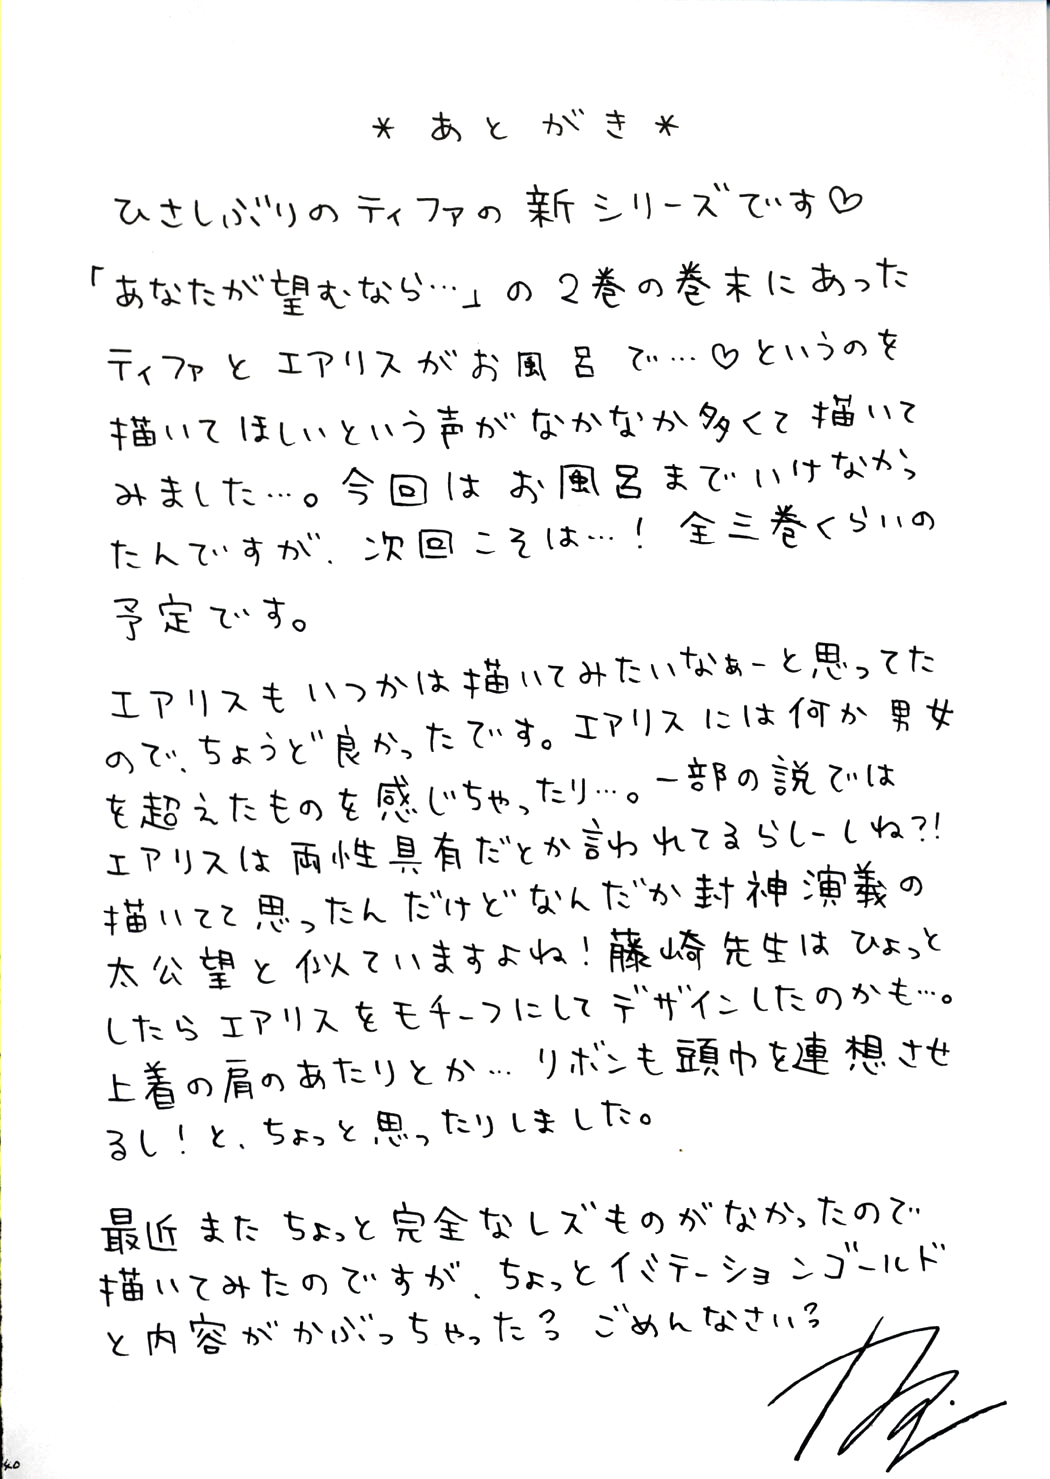 * あとがき *
ひさしぶりのティファの新シリーズです♡
「あなたが望むなら…」の2巻の巻末にあった
ティファとエアリスがお風呂で…♡というのを
描いてほしいという声がなかなか多くて描いて
みました…。今回はお風呂までいけなかっ
たんですが、次回こそは…！全三巻くらいの
予定です。
エアリスもいつかは描いてみたいなぁーと思ってた
ので、ちょうど良かったです。エアリスには何か男女
を超えたものを感じちゃったり…。一部の説では
エアリスは両性具有だとか言われてるらしーしね?!
描いてて思ったんだけどなんだか封神演義の
太公望と似ていますよね！藤崎先生はひょっと
したらエアリスをモチーフにしてデザインしたのかも…。
上着の肩のあたりとか…リボンも頭巾を連想させ
るし！と、ちょっと思ったりしました。
最近またちょっと完全なレズものがなかったので
描いてみたのですが、ちょっとイミテーションゴールド
と内容がかぶっちゃった  ごめんなさい
40